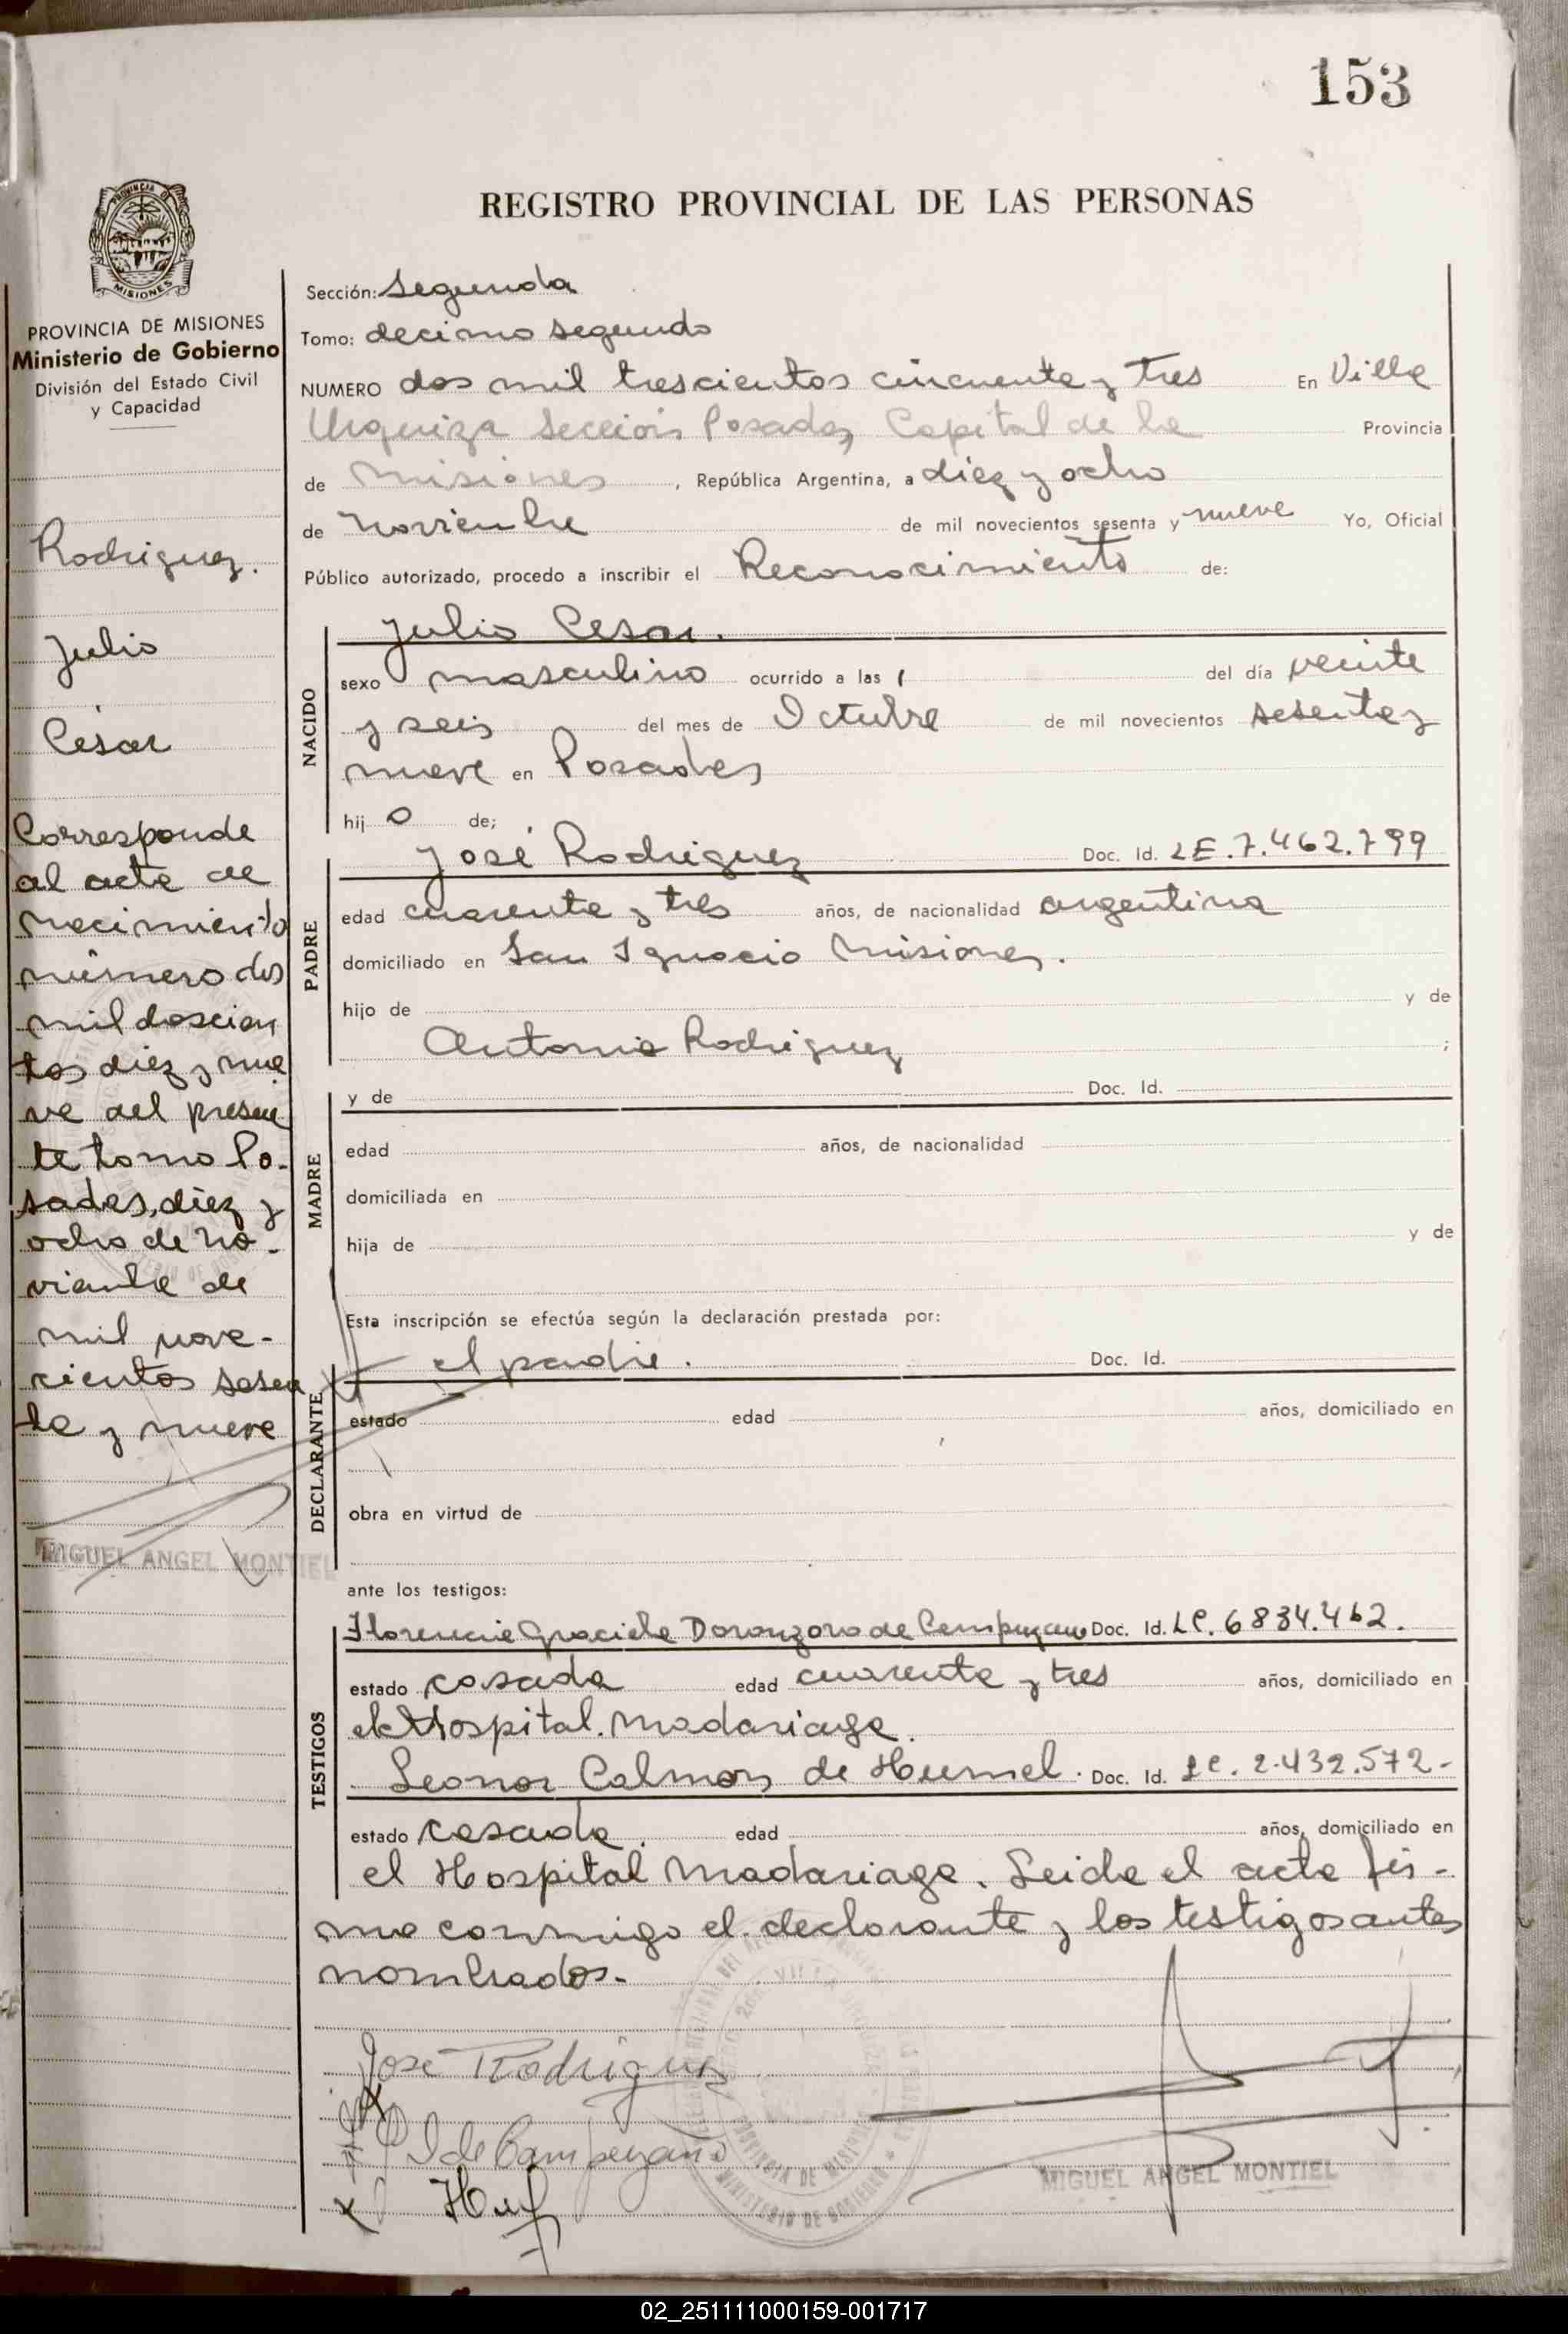 153
REGISTRO PROVINCIAL DE LAS PERSONAS
PROVINCIA DE MISIONES
Ministerio de Gobierno
División del Estado Civil
y Capacidad
Rodriguez.
Julio
César
Corresponde
al acta de
nacimiento
número dos
mil doscien
tos diez y nue
ve del presen
te tomo Po-
sadas, diez y
ocho de no-
viembre de
mil nove-
cientos sesen
ta y nueve
MIGUEL ANGEL MONTIEL
Sección: Segunda
Tomo: decimo segundo
NUMERO dos mil trescientos cincuenta y tres En Villa
Urquiza Sección Posadas, Capital de la Provincia
de Misiones, República Argentina, a diez y ocho
de noviembre de mil novecientos sesenta y nueve Yo, Oficial
Público autorizado, procedo a inscribir el Reconocimiento de:
NACIDO
Julio Cesar.
sexo masculino ocurrido a las del día veinte
y seis del mes de Octubre de mil novecientos sesenta y
nueve en Posadas
hijo de;
PADRE
José Rodriguez Doc. Id. LE.7.462.799
edad cuarenta y tres años, de nacionalidad argentina
domiciliado en San Ignacio Misiones.
hijo de y de
Antonia Rodriguez ;
MADRE
y de Doc. Id.
edad años, de nacionalidad
domiciliada en
hija de y de
Esta inscripción se efectúa según la declaración prestada por:
DECLARANTE
el padre. Doc. Id.
estado edad años, domiciliado en
obra en virtud de
ante los testigos:
TESTIGOS
Graciela de Doc. Id. LC. 6834.462.
estado casada edad cuarenta y tres años, domiciliado en
el Hospital Madariaga.
Leonor Calmon de Humel. Doc. Id. LC. 2.432.572-
estado casada. edad años, domiciliado en
el Hospital Madariaga. Leida el acta fir-
ma conmigo el declarante y los testigos antes
nombrados.-
José Rodriguez
MIGUEL ANGEL MONTIEL
02_251111000159-001717